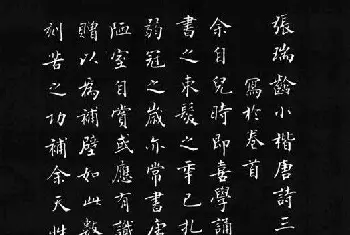 張瑞齡小楷唐詩三
寫於卷首
余自兒時即喜學誦
書之束髮之年已扎
弱冠之歲亦常書唐
陋室自賞或應有識
贈以為補壁如此數
刻苦之功補余天性